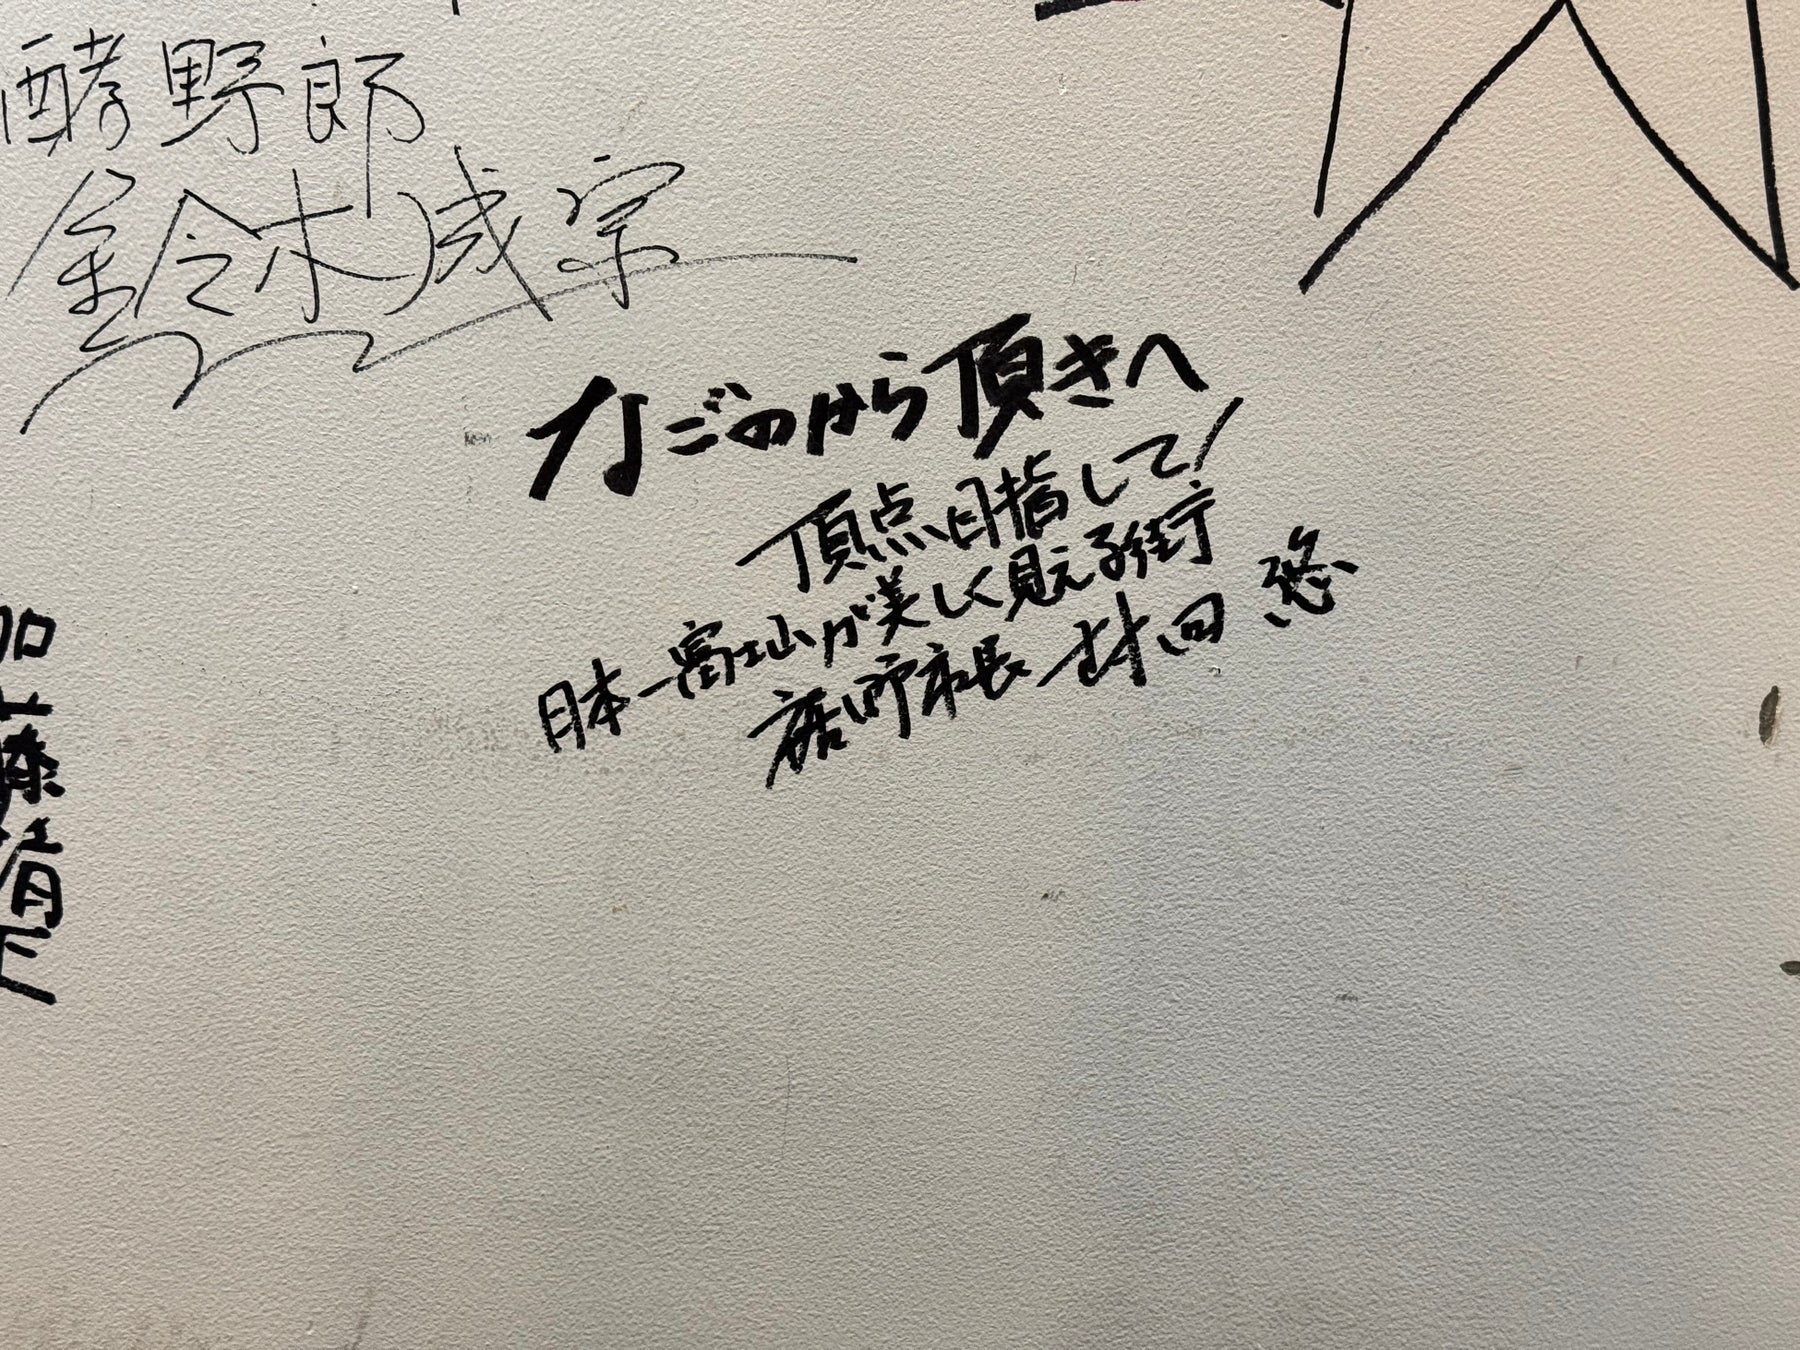 酵野郎
鈴木成宗
すごのから頂きへ
頂点目指して!
日本一富士山が美しく見える街庁
裾野市長 村田 悠
加藤清正